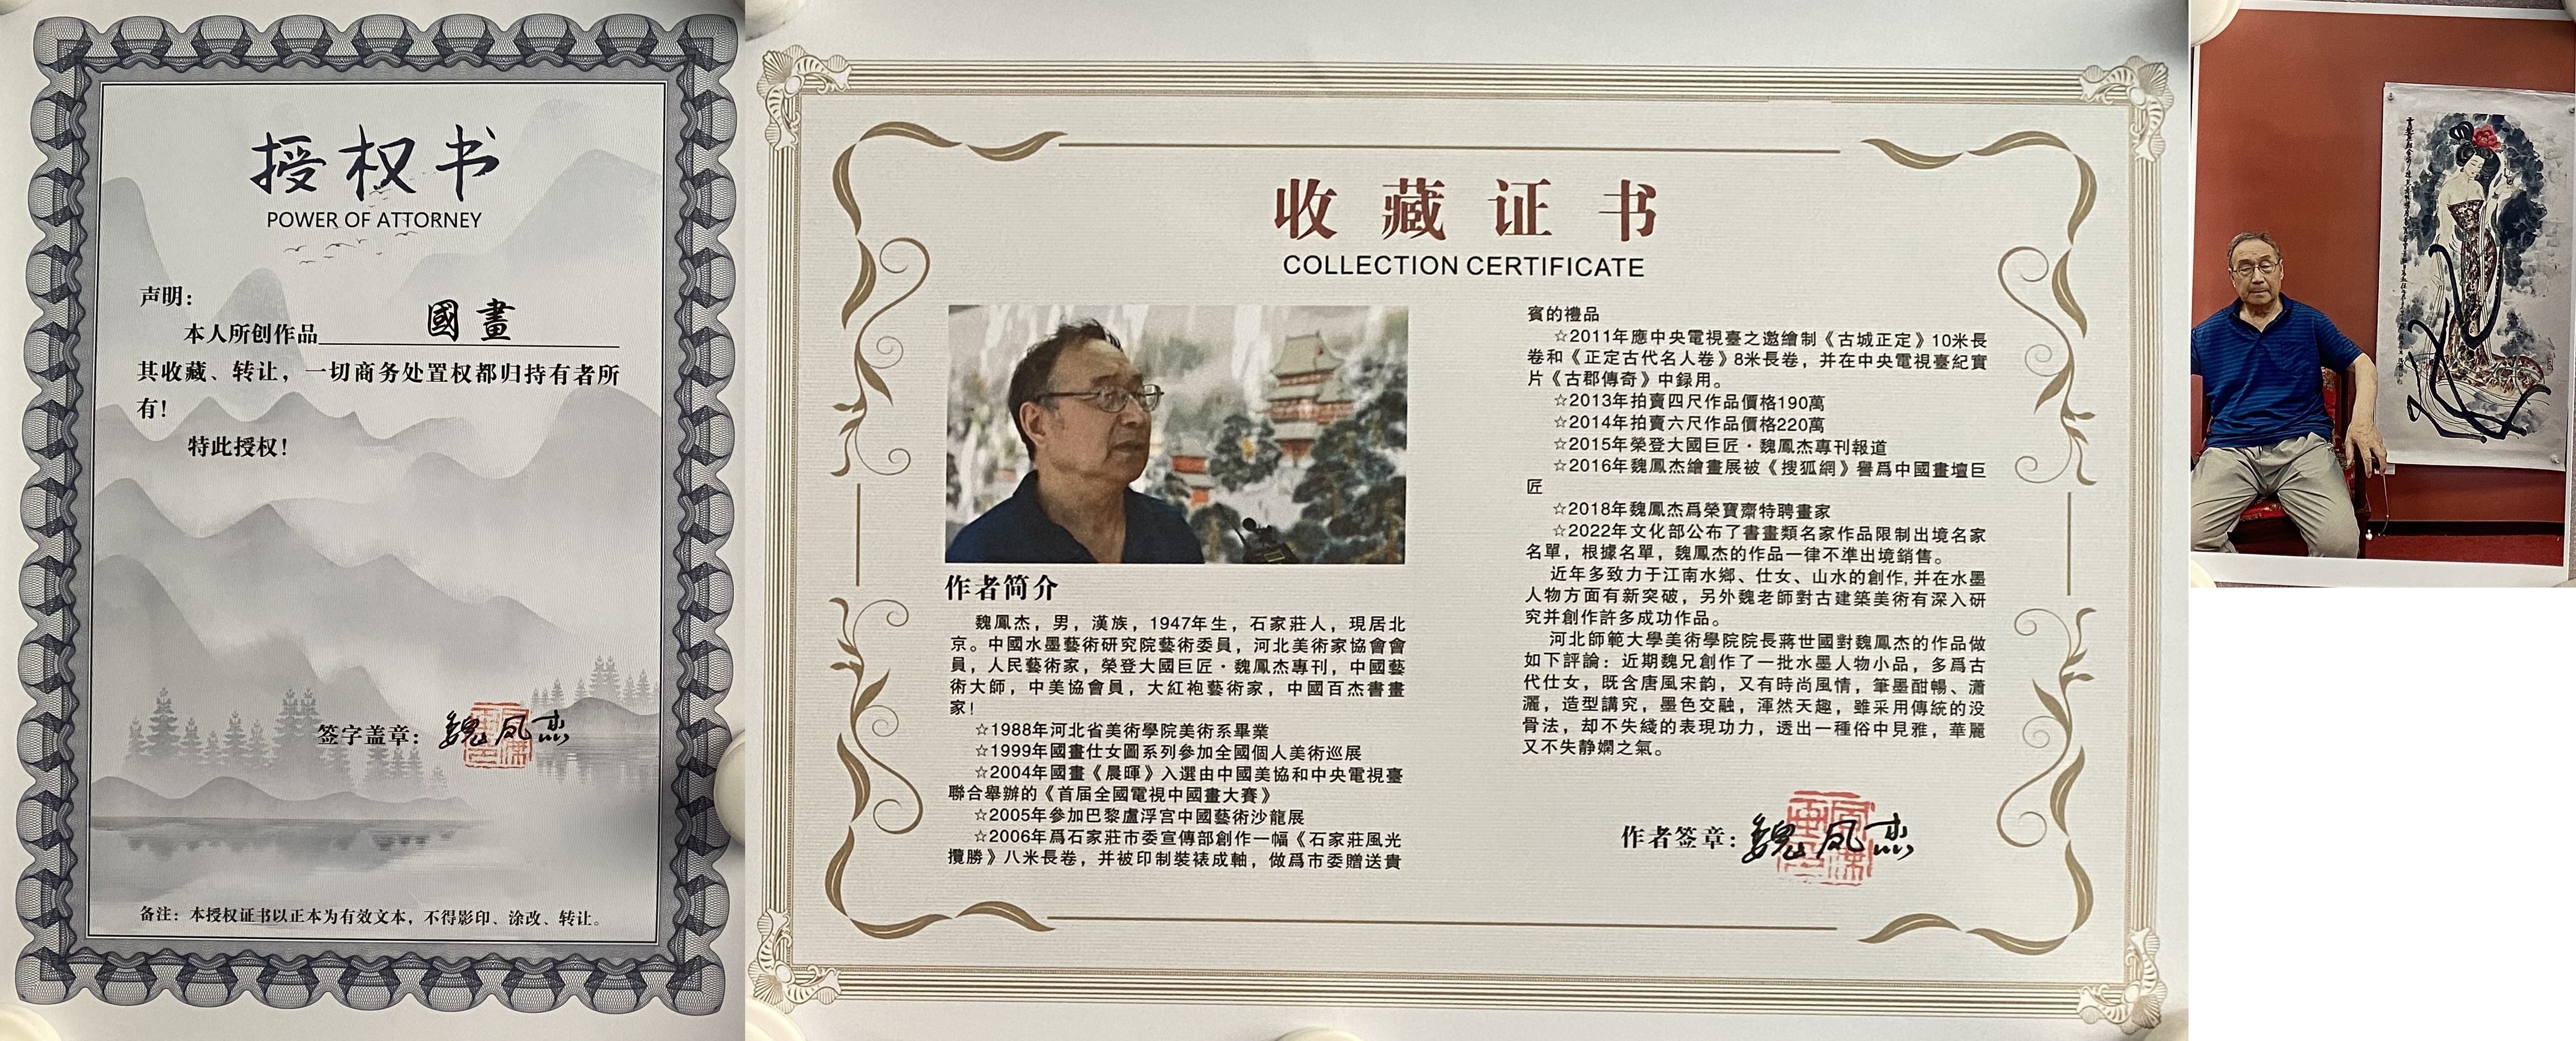 授权书
POWER OF ATTORNEY
声明：
本人所创作品 國畫
其收藏、转让，一切商务处置权都归持有者所
有！
特此授权！
签字盖章：魏凤杰
备注：本授权证书以正本为有效文本，不得影印、涂改、转让。
收藏证书
COLLECTION CERTIFICATE
作者简介
魏鳳杰，男，漢族，1947年生，石家莊人，現居北
京。中國水墨藝術研究院藝術委員，河北美術家協會會
員，人民藝術家，榮登大國巨匠·魏鳳杰專刊，中國藝
術大師，中美協會員，大紅袍藝術家，中國百杰書畫
家！
☆1988年河北省美術學院美術系畢業
☆1999年國畫仕女圖系列參加全國個人美術巡展
☆2004年國畫《晨暉》入選由中國美協和中央電視臺
聯合舉辦的《首届全國電視中國畫大賽》
☆2005年參加巴黎盧浮宫中國藝術沙龍展
☆2006年爲石家莊市委宣傳部創作一幅《石家莊風光
攬勝》八米長卷，并被印制裝裱成軸，做爲市委贈送貴
賓的禮品
☆2011年應中央電視臺之邀繪制《古城正定》10米長
卷和《正定古代名人卷》8米長卷，并在中央電視臺紀實
片《古郡傳奇》中録用。
☆2013年拍賣四尺作品價格190萬
☆2014年拍賣六尺作品價格220萬
☆2015年榮登大國巨匠·魏鳳杰專刊報道
☆2016年魏鳳杰繪畫展被《搜狐網》譽爲中國畫壇巨
匠
☆2018年魏鳳杰爲榮寶齋特聘畫家
☆2022年文化部公布了書畫類名家作品限制出境名家
名單，根據名單，魏鳳杰的作品一律不準出境銷售。
近年多致力于江南水鄉、仕女、山水的創作,并在水墨
人物方面有新突破，另外魏老師對古建築美術有深入研
究并創作許多成功作品。
河北師範大學美術學院院長蔣世國對魏鳳杰的作品做
如下評論：近期魏兄創作了一批水墨人物小品，多爲古
代仕女，既含唐風宋韵，又有時尚風情，筆墨酣暢、瀟
灑，造型講究，墨色交融，渾然天趣，雖采用傳統的没
骨法，却不失綫的表現功力，透出一種俗中見雅，華麗
又不失静嫻之氣。
作者签章：魏凤杰